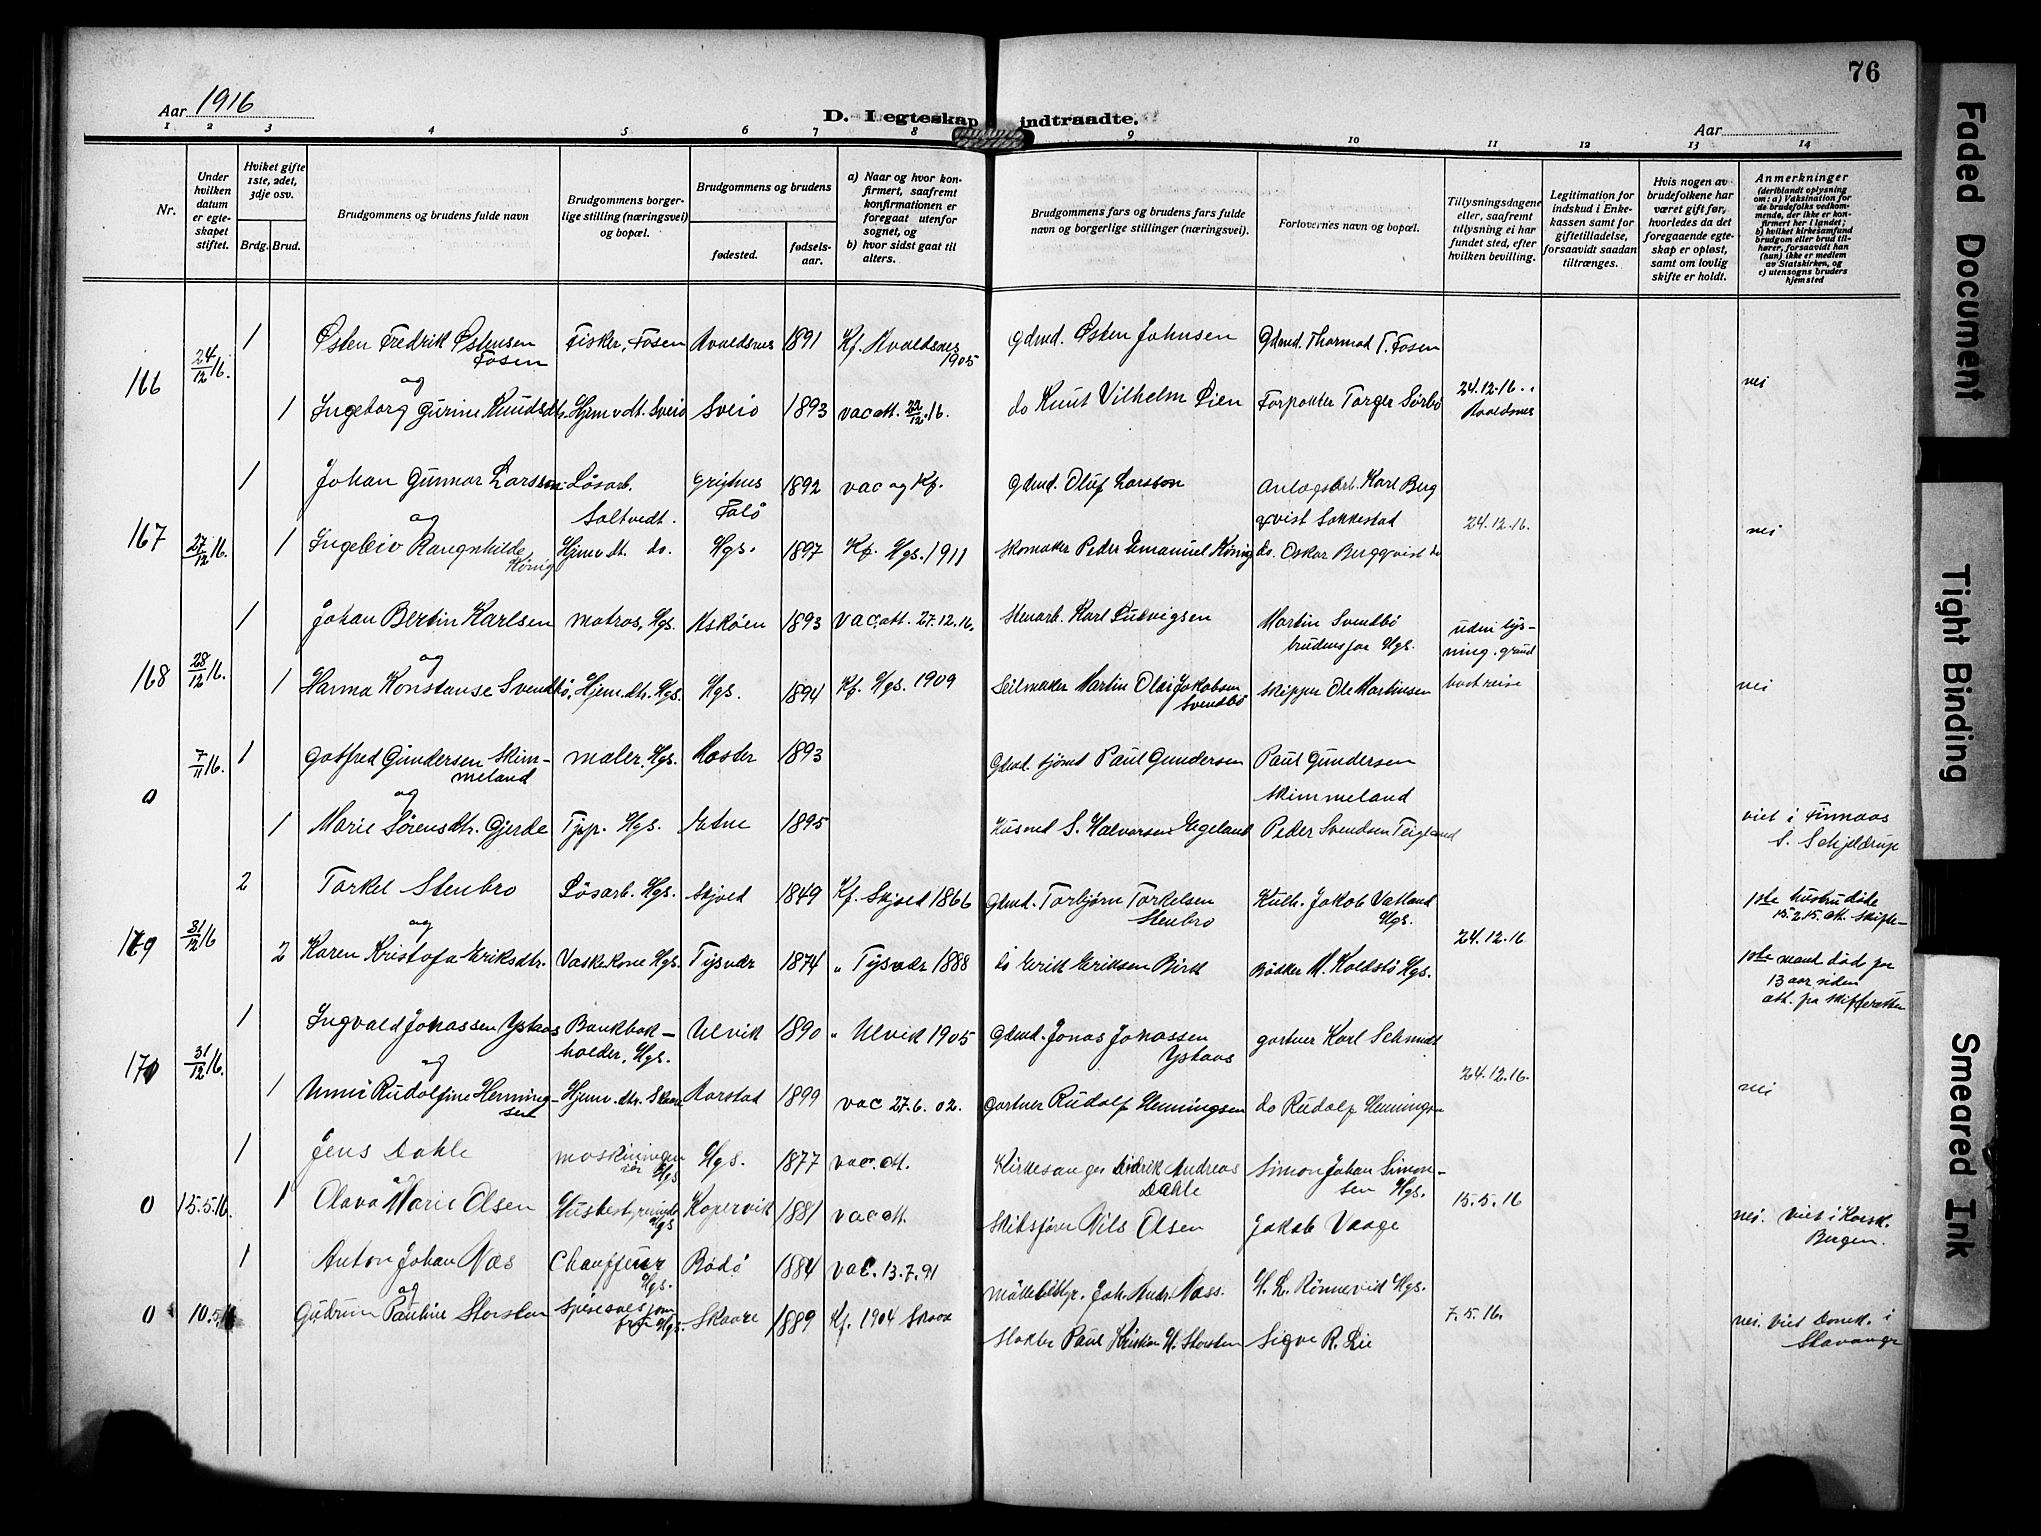 76
Aar 1916
D. Egteskap indtraadte.
Aar
1 2 3 4 5 6 7 8 9 10 11 12 13 14
Nr.
Under hvilken datum er egteskapet stiftet.
Hvilket gifte 1ste, 2det, 3dje osv.
Brdg. Brud.
Brudgommens og brudens fulde navn
Brudgommens borgerlige stilling (næringsvei) og bopæl.
Brudgommens og brudens
fødested.
fødselsaar.
a) Naar og hvor konfirmert, saafremt konfirmationen er foregaat utenfor sognet, og
b) hvor sidst gaat til alters.
Brudgommens fars og brudens fars fulde navn og borgerlige stillinger (næringsvei).
Forlovernes navn og bopæl.
Tillysningsdagene eller, saafremt tillysning ei har fundet sted, efter hvilken bevilling.
Legitimation for indskud i Enkekassen samt for giftetilladelse, forsaavidt saadan tiltrænges.
Hvis nogen av brudefolkene har været gift før, hvorledes da det foregaaende egteskap er opløst, samt om lovlig skifte er holdt.
Anmerkninger
(deriblandt oplysning om: a) Vaksination for de brudefolks vedkommende, der ikke er konfirmert her i landet; b) hvilket kirkesamfund brudgom eller brud tilhører, forsaavidt han (hun) ikke er medlem av Statskirken, og c) utensogns bruders hjemsted
166 24/12 16. 1 Østen Fredrik Østensen Fosen Fisker, Fosen Avaldsnes 1891 Kf. Avaldsnes 1905 Gdmd. Østen Johnsen Gdmd. Thormod T. Fosen
og
1 Ingeborg Gurine Knudsdtr. Hjemv. dt. Sveio Sveio 1893 vac att. 22/12 16. do Knut Vilhelm Lien Forpakter Torger Sørbø 24.12.16. Avaldsnes nei
167 27/12 16. 1 Johan Gunnar Larsson Løsarb. Saltvedt. 1892 vac og Kf. Gdmd. Oluf Larsson Anlagsarb. Karl Bergqvist Sakkestad 24.12.16.
og
1 Ingeleiv Rangnhilde König Hjemv dt. do. Hgs. 1897 Kf. Hgs. 1911 Skomaker Peder Emanuel König do. Oskar Bergqvist do nei
168 28/12 16. 1 Johan Bertin Karlsen matros, Hgs. Askøen 1893 vac. att. 27.12.16. Stenarb. Karl Ludvigsen Martin Svendbø brudens far Hgs. uden lysning. grund bortreise
og
1 Hanna Konstanse Svendbø, Hjem. dtr. Hgs. Hgs. 1894 Kf. Hgs. 1909 Seilmaker Martin Olai Jakobsen Svendbø skipper Ole Martinsen nei
0 7/11 16. 1 Gotfred Gundersen Skimmeland maler. Hgs. Moster 1893 Gdmd. Paul Gundersen Paul Gundersen Skimmeland
og
1 Marie Sørensdtr. Gjerde Tjp. Hgs. Etne 1895 Husmd S. Halvorsen Egeland Peder Svendsen Teigland viet i Finnaas S. Schjelderup
169 31/12 16 2 Torkel Stenbro Løsarb. Hgs. Skjold 1849 Kf. Skjold 1866 Gdmd. Torbjørn Torkelsen Stenbro Jakob Vatland Hgs. 24.12.16 1ste hustru døde 15.2.15. att. skifte-
og
2 Karen Kristofa Eriksdtr. Vaskekone Hgs. Tysvær 1874 " Tysvær 1888 do Erik Eriksen Birk Bødker M. Koldstø Hgs. 1ste mand død for 13 aar siden att. fra skifteretten
170 31/12 16. 1 Ingvald Jonassen Ystaas Bankbokholder, Hgs. Ulvik 1890 " Ulvik 1905 Gdmd. Jonas Jonassen Ystaas gartner Karl Schmidt 24.12.16.
og
1 Unni Rudolfine Henningsen Hjemv. dtr. Skaare Aarstad 1899 vac 27.6.02. gartner Rudolf Henningsen do Rudolf Henningsen nei
0 15.5.16. 1 Jens Dahle maskiningeniør Hgs Hgs. 1877 vac. att. Kirkesanger Didrik Andreas Dahle Simon Johan Simonsen Hgs. 15.5.16
1 Olava Marie Olsen Husbestyrerinde Hgs Kopervik 1881 vac att. Skibsfører Nils Olsen Jakob Vaage nei. viet i Korsk. Bergen.
0 10.5.16 1 Anton Johan Næs Chauffeur Hgs. Rødø 1884 vac. 13.7.91 Joh. Andr. Næss. H. L. Rønnevik Hgs. 7.5.16.
og
Gudrun Pauline Storsten Hgs. Skaare 1889 Kf. 1904 Skaare Slakter Paul Kristian H. Storsten Sigve R. Lie nei. viet Domk. i Stavanger
Faded Document
Tight Binding
Smeared Ink